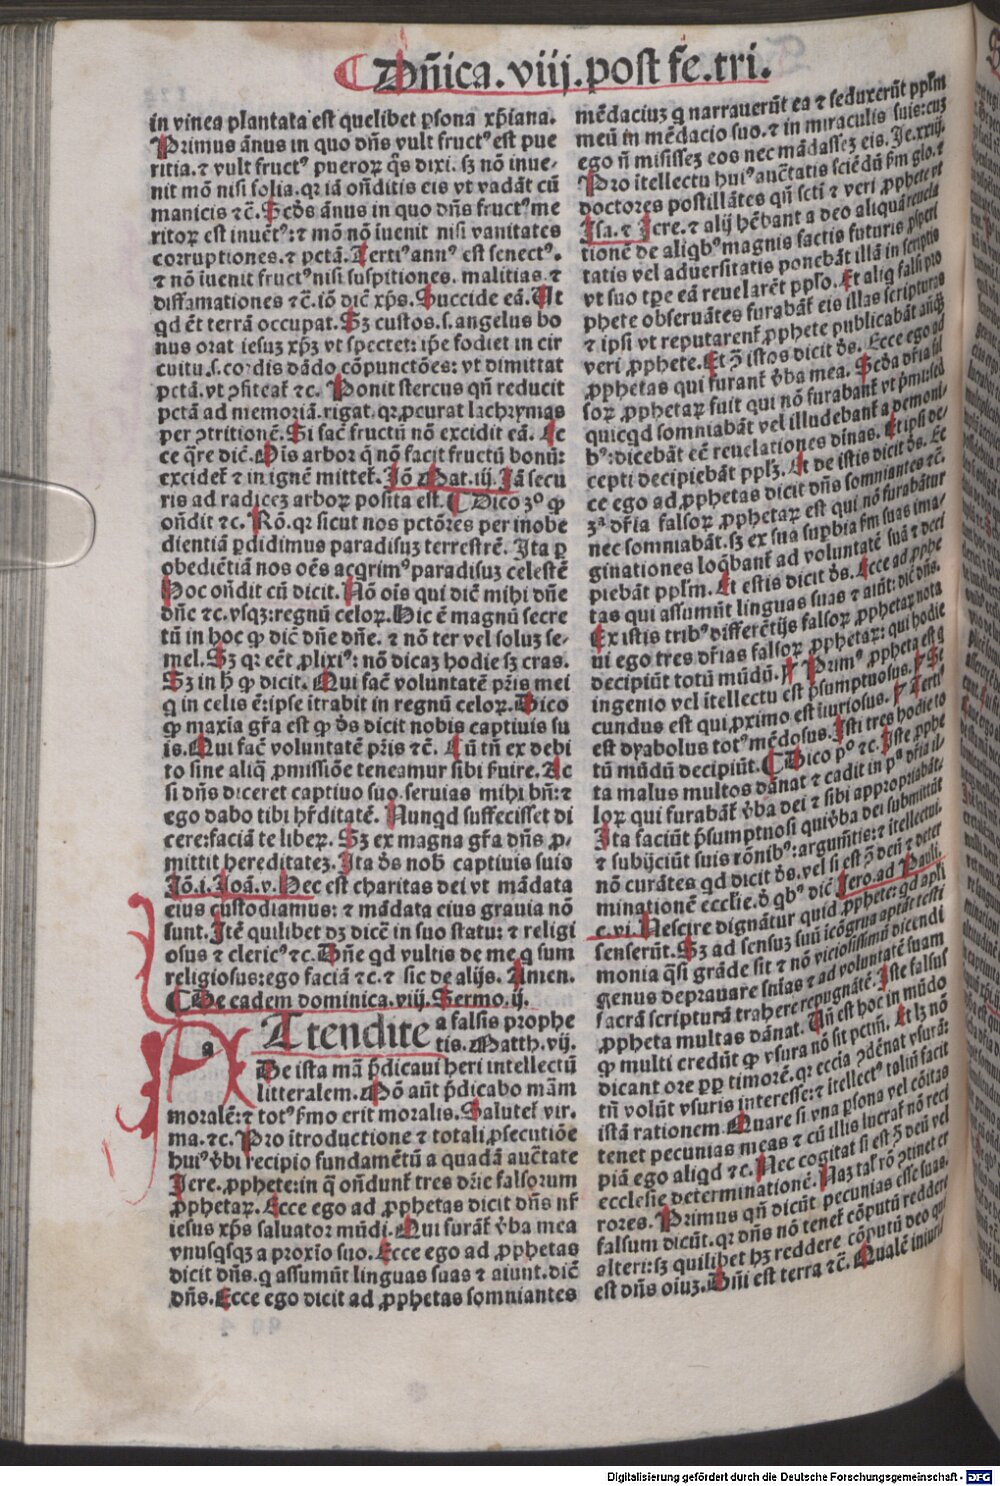 Dñica.viij.post fe.tri.
in vinea plantata est quelibet ꝑsona xp̄iana.
Primus ānus in quo dn̄s vult fructꝰ est pue
ritia.⁊ vult fructꝰ pueroꝝ q̄s dixi. sꝫ nō inue-
nit mō nisi folia.qꝛ iā on̄ditis eis vt vadāt cū
manicis ⁊c̄. Scd̄s ānus in quo dn̄s fructꝰ me
ritoꝝ est inuēt ꝰ:⁊ mō nō iuenit nisi vanitates
corruptiones.⁊ pctā. Tertiꝰ annꝰ est senectꝰ.
⁊ nō iuenit fructꝰ nisi suspitiones. malitias.⁊
diffamationes ⁊c̄. iō dic̄ xp̄s. Succide eā. Ut
qd ēt terrā occupat. Sꝫ custos.s.angelus bo
nus orat iesuꝫ xp̄ꝫ vt spectet: ip̄e fodiet in cir
cuitu.s.cordis dādo cōpunctōes: vt dimittat
pctā.vt ꝯfiteat̄ ⁊c. Ponit stercus qn̄ reducit
pctā ad memoriā.rigat.qꝛ ꝓcurat lachrymas
per ꝯtritionē. Si fac̄ fructū nō excidit eā. Ec
ce q̄re dic̄. Ois arbor q̄ nō facit fructū bonū:
excidet̄ ⁊ in ignē mittet̄. Iō Mat.iij. Iā secu
ris ad radiceꝫ arboꝝ posita est. ¶ Dico 3º ꝙ
on̄dit ⁊c. Rō.qꝛ sicut nos pctōres per inobe
dientiā ꝑdidimus paradisuꝫ terrestrē. Ita ꝑ
obediētiā nos oēs acqrimꝰ paradisuꝫ celestē
Hoc on̄dit cū dicit. Nō oīs qui dic̄ mihi dn̄e
dn̄e ⁊c. vsqꝫ: regnū celoꝝ. Hic ē magnū secre
tū in hoc ꝙ dic̄ dn̄e dn̄e. ⁊ nō ter vel soluꝫ se-
mel. Sꝫ qꝛ eēt ꝓlixiꝰ: nō dicaꝫ hodie sꝫ cras.
Sꝫ in h̄ ꝙ dicit. Qui fac̄ voluntatē pr̄is mei
q in celis ē: ipse itrabit in regnū celoꝝ. Dico
ꝙ maxīa gr̄a est ꝙ d̄s dicit nobis captiuis su
is. Qui fac̄ voluntatē pr̄is ⁊c̄. Cū tn̄ ex debi
to sine aliq̄ ꝓmissiōe teneamur sibi s̄uire. Ac
si dn̄s diceret captiuo suo. seruias mihi bn̄: ⁊
ego dabo tibi hr̄ditatē. Nunqd suffecisset di
cere: faciā te liberꝝ. Sꝫ ex magna gr̄a dn̄s ꝓ-
mittit hereditateꝫ. Ita d̄s nob̄ captiuis suis
Iō.i.Ioā.v. Hec est charitas dei vt mādata
eius custodiamus: ⁊ mādata eius grauia nō
sunt. Itē quilibet dꝫ dicē in suo statu: ⁊ religi
osus ⁊ clericꝰ ⁊c. Dn̄e qd vultis de me. q sum
religiosus: ego faciā ⁊c.⁊ sic de alijs. Amen.
¶ De eadem dominica.viij. Sermo.ij.
a
Attendite a falsis prophe
tis. Matth.vij.
De ista mā p̄dicaui heri intellectū
litteralem. Mō aūt p̄dicabo mām
moralē: ⁊ totꝰ s̄mo erit moralis. Salutet̄ vir.
ma.⁊c. Pro ītroductione ⁊ totali ꝓsecutiōe
huiꝰ v̄bi recipio fundamētū a quadā auc̄tate
Iere. ꝓphete: in q̄ on̄dunt̄ tres dr̄ie falsorum
ꝓphetaꝝ. Ecce ego ad ꝓphetas dicit dn̄s nr̄
iesus xp̄s saluator mūdi. Qui furāt̄ v̄ba mea
vnusqsqꝫ a proxīo suo. Ecce ego ad ꝓphetas
dicit dn̄s. q assumūt linguas suas ⁊ aiunt. dic̄
dn̄s. Ecce ego dicit ad ꝓphetas somniantes
mēdaciuꝫ q narrauerūt ea ⁊ seduxerūt ppl̄m
meū in mēdacio suo.⁊ in miraculis suis: cuꝫ
ego n̄ misisseꝫ eos nec mādasseꝫ eis. Je.xxiij.
Pro ītellectu huiꝰ auc̄tatis sciēdū s̄m glo.⁊
doctores postillātes qn̄ sc̄ti ⁊ veri ꝓphete vt
Isa.⁊ Iere.⁊ alij hēbant a deo aliquā reuela
tionē de aliqbꝰ magnis factis futuris ꝓsperi
tatis vel aduersitatis ponebāt illā in scriptis
vt suo tꝑe eā reuelarēt pplo. Et aliq falsi pro
phete obseruātes furabāt̄ eis illas scripturas
⁊ ipsi vt reputarent̄ ꝓphete publicabāt
veri ꝓphete. Et ꝯ istos dicit d̄s. Ecce ego ad
ꝓphetas qui furant̄ v̄ba mea. Scd̄a dr̄ia fal
soꝝ ꝓphetaꝝ fuit qui nō furabant̄ vt
quicqd somniabāt vel illudebant̄ a demoni
bꝰ: dicebāt eē reuelationes diuīas. Et ipsi de-
cepti decipiebāt pplꝫ. Et de istis dicit d̄s. Ec
ce ego ad ꝓphetas dicit dn̄s somniantes ⁊c̄.
3ª dr̄ia falsoꝝ ꝓphetaꝝ est qui nō furabātur
nec somniabāt. sꝫ ex sua supbia s̄m suas ima-
ginationes loqbant̄ ad voluntatē suā ⁊ deci
piebāt ppl̄m. Et estis dicit d̄s. Ecce ad ꝓphe
tas qui assumūt linguas suas ⁊ aiūt: dic̄ dn̄s.
Ex istis tribꝰ differētijs falsoꝝ ꝓphetaꝝ nota
ui ego tres dr̄ias falsoꝝ ꝓphetaꝝ: qui hodie
decipiūt totū mūdū. Primꝰ ꝓpheta est q
ingenio vel ītellectu est p̄sumptuosus. Se
cundus est qui ꝓximo est iiuriosus. Tertiꝰ
est dyabolus totꝰ mēdosus. Isti tres hodie to
tū mūdū decipiūt. ¶ Dico pº ⁊c. Iste ꝓphe
ta malus multos dānat ⁊ cadit in pª dr̄ia il
loꝝ qui furabāt̄ v̄ba dei ⁊ sibi appropriabāt.
Ita faciūt p̄sumptuosi qui v̄ba dei submittūt
⁊ subijciūt suis rōnibꝰ: argum̄tis: ⁊ itellectui.
nō curātes qd dicit d̄s. vel si est ꝯ deū ⁊ deter
minationē ecclīe. d̄ qbꝰ dic̄ Iero.ad Pauli.
c.vi. Nescire dignātur quid ꝓphete: qd apl̄i
senserūt. Sꝫ ad sensuꝫ suū īcōgrua aptāt testi
monia q̄si grāde sit ⁊ nō viciosissimū dicendi
genus deprauare sn̄ias ⁊ ad voluntatē suam
sacrā scripturā trahere repugnātē. Iste falsus
ꝓpheta multas dānat. Un̄ est hoc in mūdo
ꝙ multi credūt ꝙ vsura nō sit pctm̄. Et lꝫ nō
dicant ore ꝓꝑ timorē. qꝛ eccīa ꝯdēnat vsurā:
tn̄ volūt vsuris interesse: ⁊ itellectꝰ
istā rationem. Quare si vna ꝑsona vel cōitas
tenet pecunias meas ⁊ cū illis lucrat̄ nō reci
piā ego aliqd ⁊c. Nec cogitat si est ꝯ deū vel
ecclesie determinationē. Naꝫ tal̄ rō ꝯtinet er
rores. Primus qn̄ dicūt pecunias esse suas.
falsum dicūt. qꝛ dn̄s nō tenet̄ cōputū reddere
alteri: sꝫ quilibet hꝫ reddere cōputū deo qui
est dn̄s oiuꝫ. Dn̄i est terra ⁊c̄. Qualē iniuriā
Digitalisierung gefördert durch die Deutsche Forschungsgemeinschaft - DFG